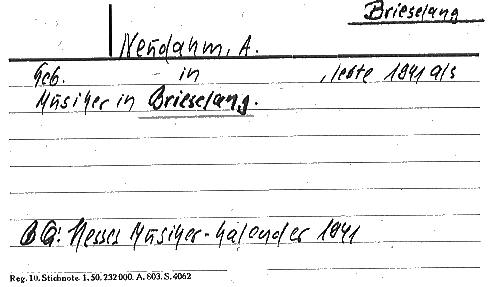 Brieselang
Neudahm, A.
Geb. - in , lebte 1941 als
Musiker in Brieselang.
BQ: Hesses Musiker-Kalender 1941
Reg. 10. Stichnote 1. 50. 232000. A. 803. S. 4062